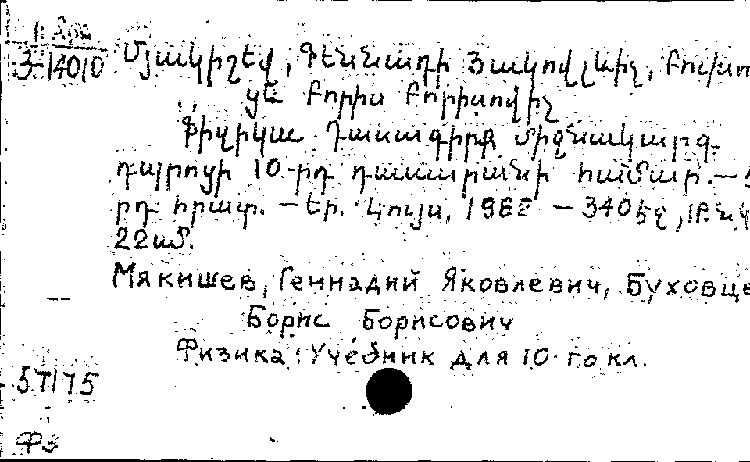 3-14010 Մյակիշև, Գեննադի Յակովլևիչ, Բուխո
ցև Բորիս Բորիսովիչ
Ֆիզիկա Դասագիրք միջնակարգ
դպրոցի 10-րդ դասարանի համար. —
րդ հրատ. — Եր. Լույս, 198 — 340 էջ,
22 սմ.
Мякишев, Геннадий Яковлевич, Буховце
Борис Борисович
Физика: Учебник для 10-го кл.
57175
ФЗ